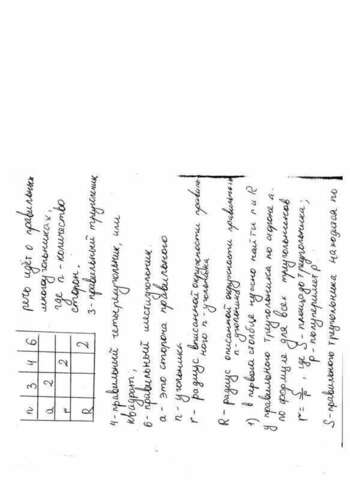 n 3 4 6
a 2
r 2
R 2
речь идёт о правильных
многоугольниках,
где n - количество
сторон.
3-правильный треугольник
4-правильный четырёхугольник, или
квадрат;
6-правильный шестиугольник.
a - это сторона правильного
n-угольника
r - радиус вписанной окружности правиль-
ного n-угольника
R - радиус описанной окружности правильного
n-угольника
1) в первом столбце нужно найти r и R
у правильного треугольника по стороне a.
по формуле для всех треугольников
r = S/p, где S - площадь треугольника;
p - полупериметр.
S-правильного треугольника находится по